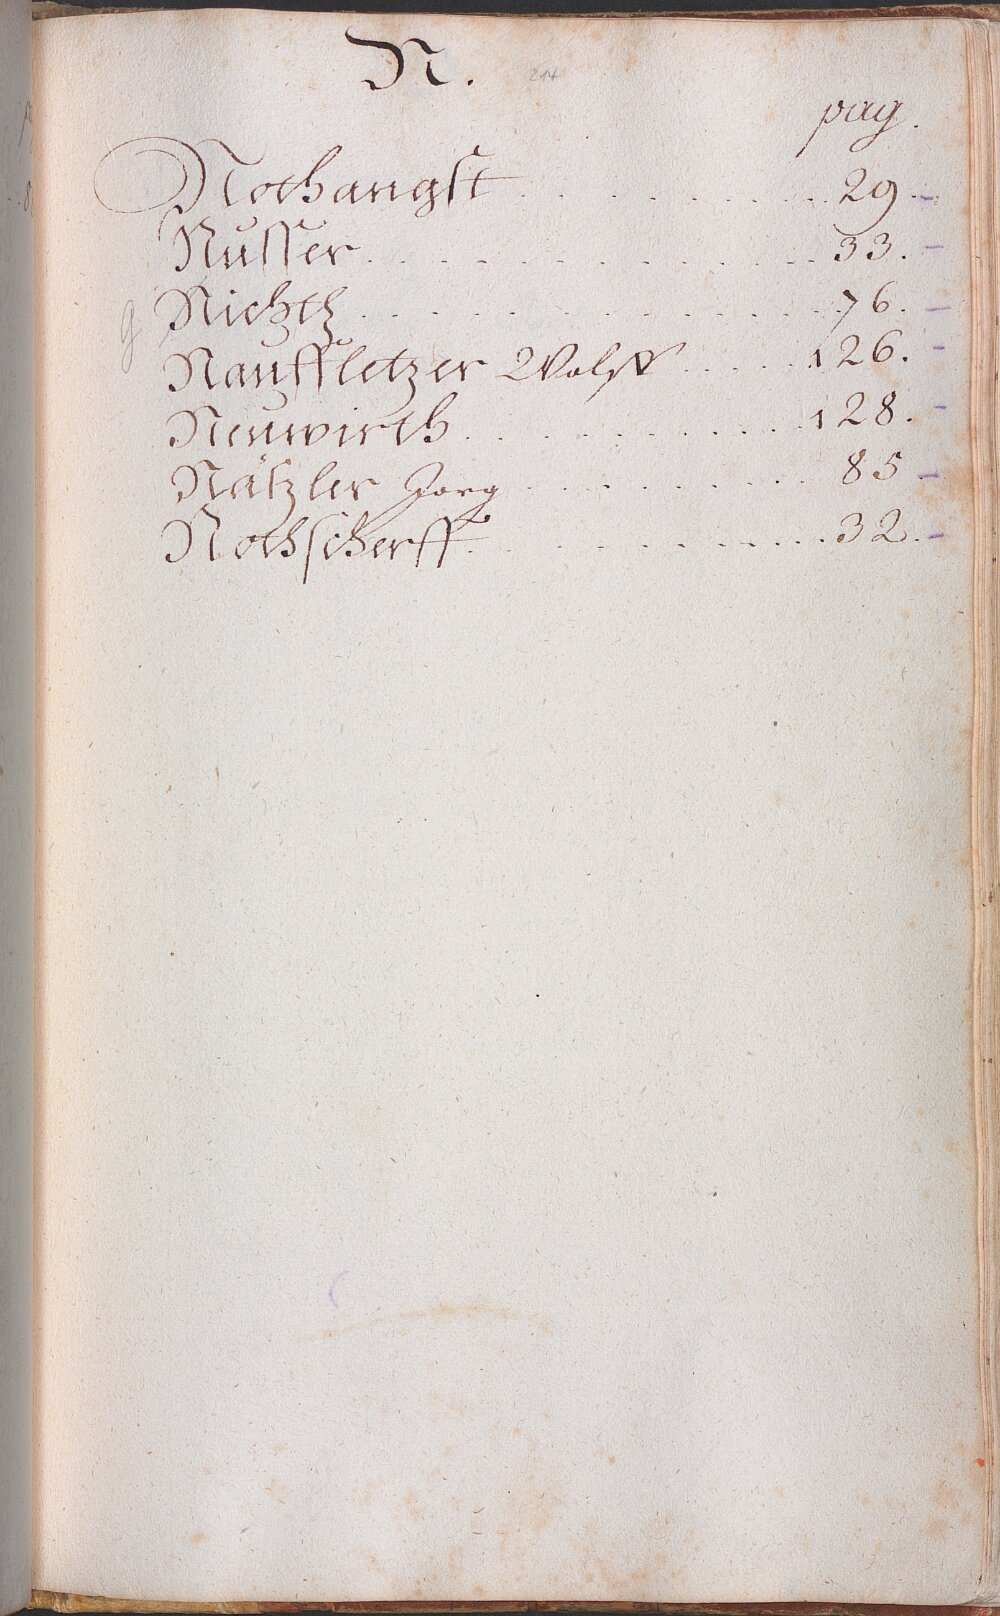 N. 214
pag.
Nothangst . . . . . . . . 29.
Nusser . . . . . . . . . . 33.
g Nichtz . . . . . . . . . . 76.
Nauffletzer Wolff . . . . . 126.
Neuwirth . . . . . . . . . 128.
Nätzler Jorg . . . . . . . 85
Nothscherff . . . . . . . . 32.